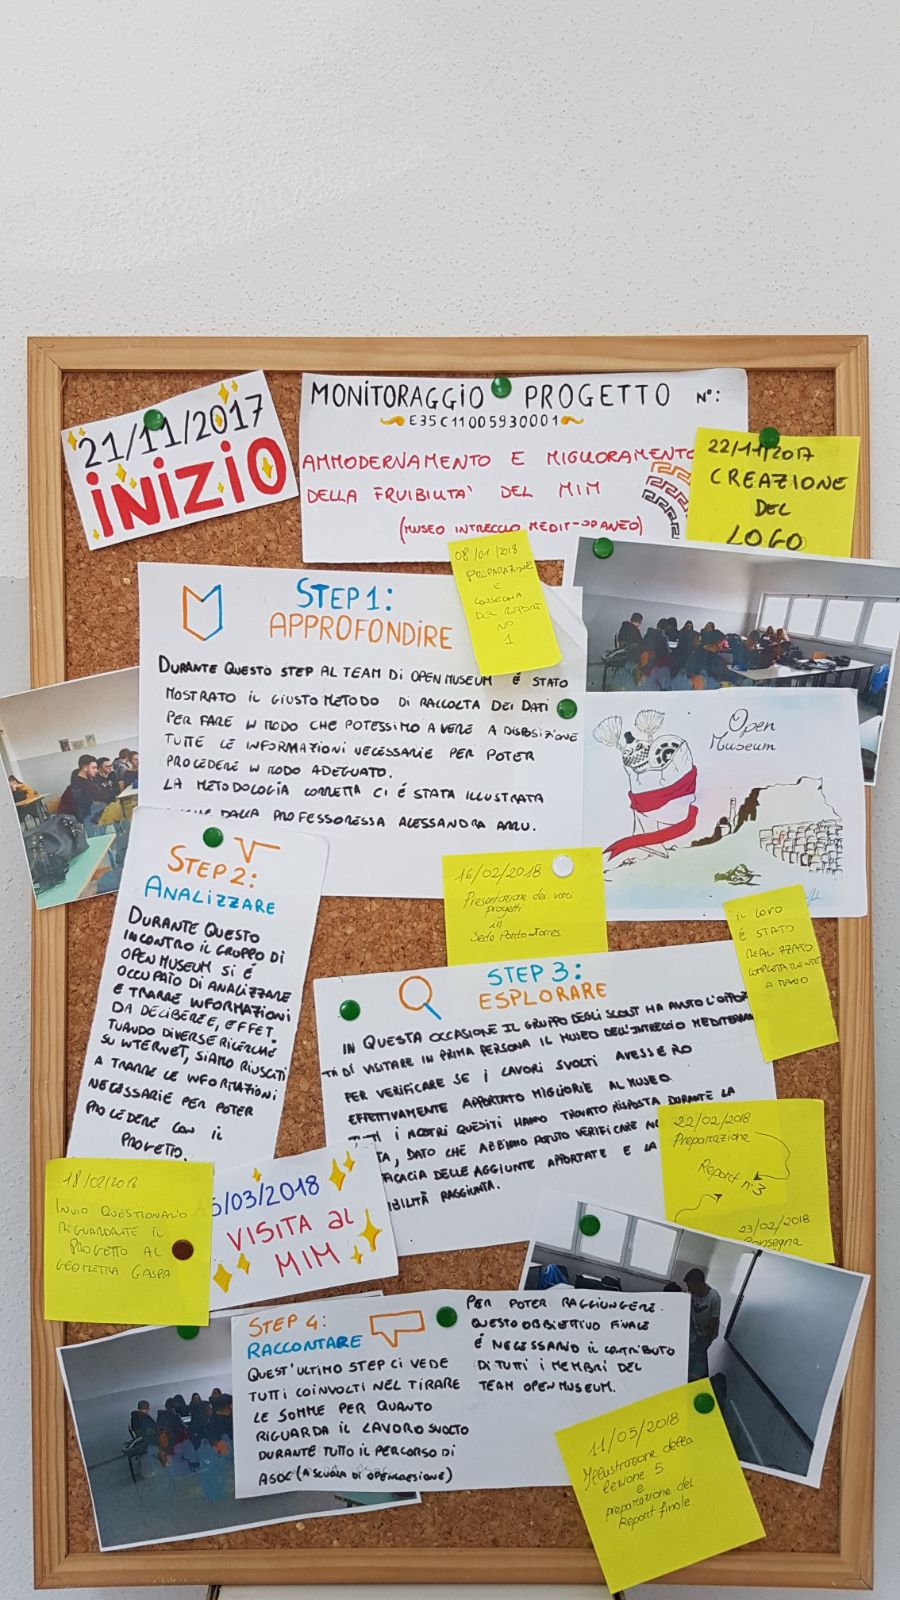 21/11/2017
INIZIO
MONITORAGGIO PROGETTO N°:
E35C11005930001
AMMODERNAMENTO E MIGLIORAMENTO
DELLA FRUIBILITA' DEL MIM
(MUSEO INTRECCIO MEDIT
22/11/2017
CREAZIONE
DEL
LOGO
08/01/2018
PREPARAZIONE
E
CONSEGNA
DEL REPORT
NO
1
STEP 1:
APPROFONDIRE
DURANTE QUESTO STEP AL TEAM DI OPEN MUSEUM É STATO
MOSTRATO IL GIUSTO METODO DI RACCOLTA DEI DATI
PER FARE IN MODO CHE POTESSIMO AVERE A DISPOSIZIONE
TUTTE LE INFORMAZIONI NECESSARIE PER POTER
PROCEDERE IN MODO ADEGUATO.
LA METODOLOGIA CORRETTA CI É STATA ILLUSTRATA
DALLA PROFESSORESSA ALESSANDRA ARRU.
Open
Museum
STEP 2:
ANALIZZARE
DURANTE QUESTO
INCONTRO IL GRUPPO DI
OPEN MUSEUM SI É
OCCUPATO DI ANALIZZARE
E TRARRE INFORMAZIONI
DA DELIBERE, EFFET.
TUANDO DIVERSE RICERCHE
SU INTERNET, SIAMO RIUSCITI
A TRARRE LE INFORMAZIONI
NECESSARIE PER POTER
PROCEDERE CON IL
PROGETTO.
16/02/2018
Presentazione dei vari
progetti
in
Sede Porto-Torres
IL LOGO
É STATO
REALIZZATO
COMPLETAMENTE
A MANO
STEP 3:
ESPLORARE
IN QUESTA OCCASIONE IL GRUPPO DEGLI SCOUT HA AVUTO L'OPPOR
TÁ DI VISITARE IN PRIMA PERSONA IL MUSEO DELL'INTRECCIO MEDITERRAN
PER VERIFICARE SE I LAVORI SVOLTI AVESSERO
EFFETTIVAMENTE APPORTATO MIGLIORIE AL MUSEO.
TUTTI I NOSTRI QUESITI HANNO TROVATO RISPOSTA DURANTE LA
TA, DATO CHE ABBIAMO POTUTO VERIFICARE
FICACIA DELLE AGGIUNTE APPORTATE E LA
IBILITÀ RAGGIUNTA.
22/02/2018
Preparazione
Report n.3
23/02/2018
Consegna
18/02/2018
INVIO QUESTIONARIO
RIGUARDANTE IL
PROGETTO AL
GEOMETRA GASPA
5/03/2018
VISITA al
MIM
STEP 4:
RACCONTARE
QUEST'ULTIMO STEP CI VEDE
TUTTI COINVOLTI NEL TIRARE
LE SOMME PER QUANTO
RIGUARDA IL LAVORO SVOLTO
DURANTE TUTTO IL PERCORSO DI
ASOC (A SCUOLA DI OPENCOESIONE)
PER POTER RAGGIUNGERE
QUESTO OBBIETTIVO FINALE
É NECESSARIO IL CONTRIBUTO
DI TUTTI I MEMBRI DEL
TEAM OPEN MUSEUM.
11/05/2018
Illustrazione della
lezione 5
e
preparazione del
Report finale.